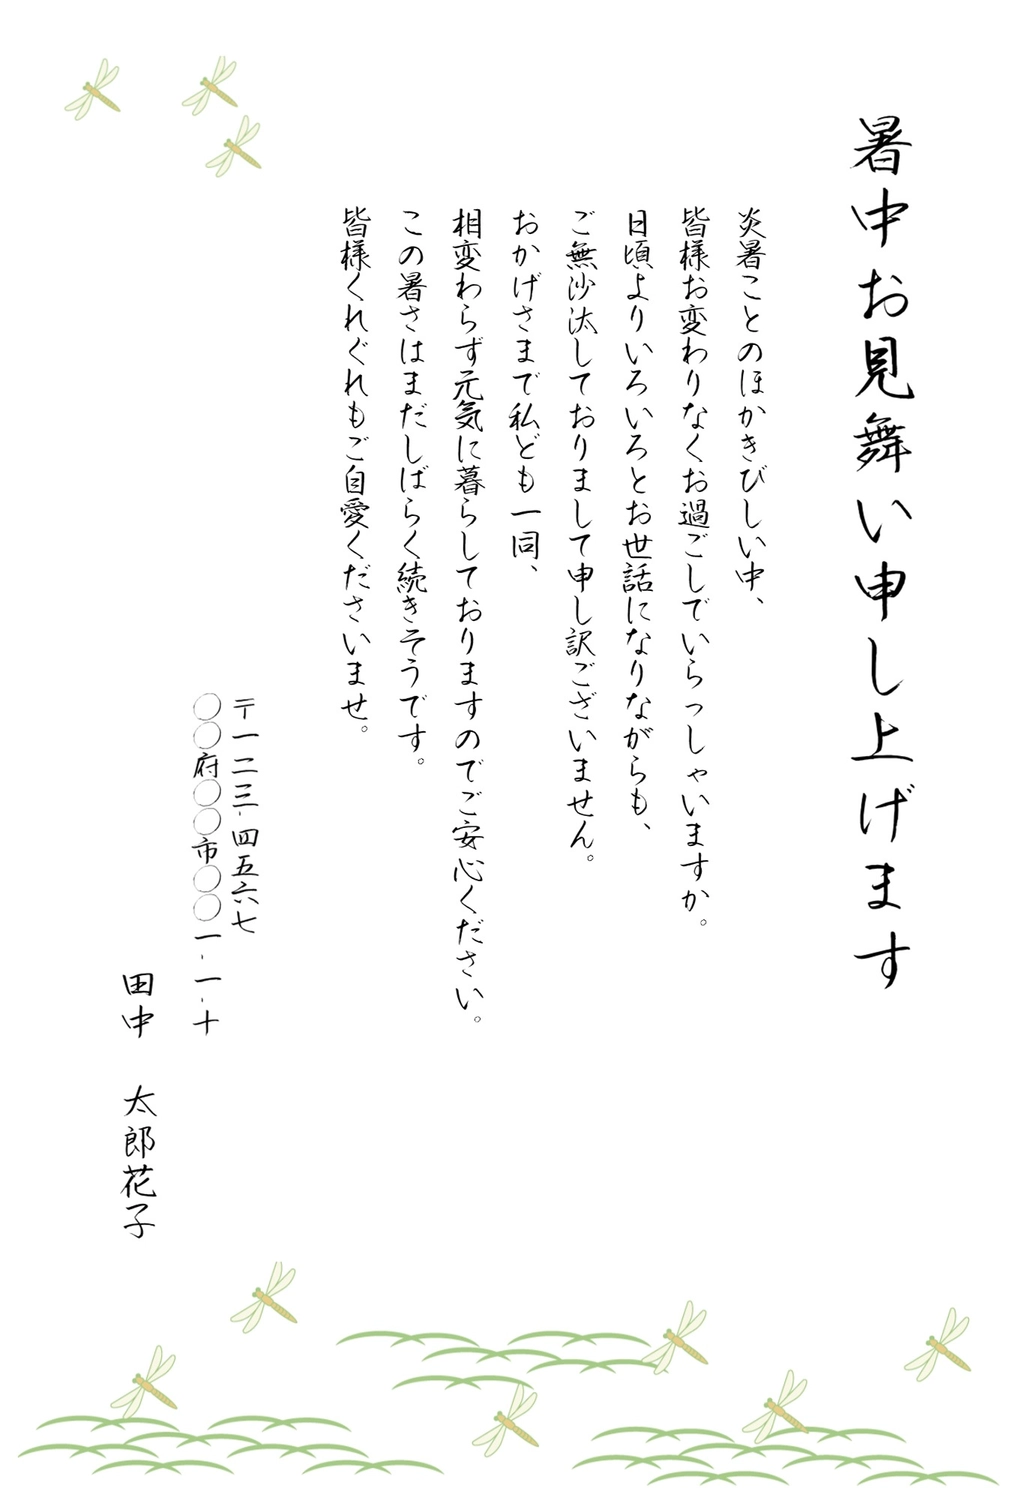 暑中お見舞い申し上げます
炎暑ことのほかきびしい中、
皆様お変わりなくお過ごしでいらっしゃいますか。
日頃よりいろいろとお世話になりながらも、
ご無沙汰しておりまして申し訳ございません。
おかげさまで私ども一同、
相変わらず元気に暮らしておりますのでご安心ください。
この暑さはまだしばらく続きそうです。
皆様くれぐれもご自愛くださいませ。
〒一二三-四五六七
〇〇府〇〇市〇〇一-一-十
田中　太郎花子